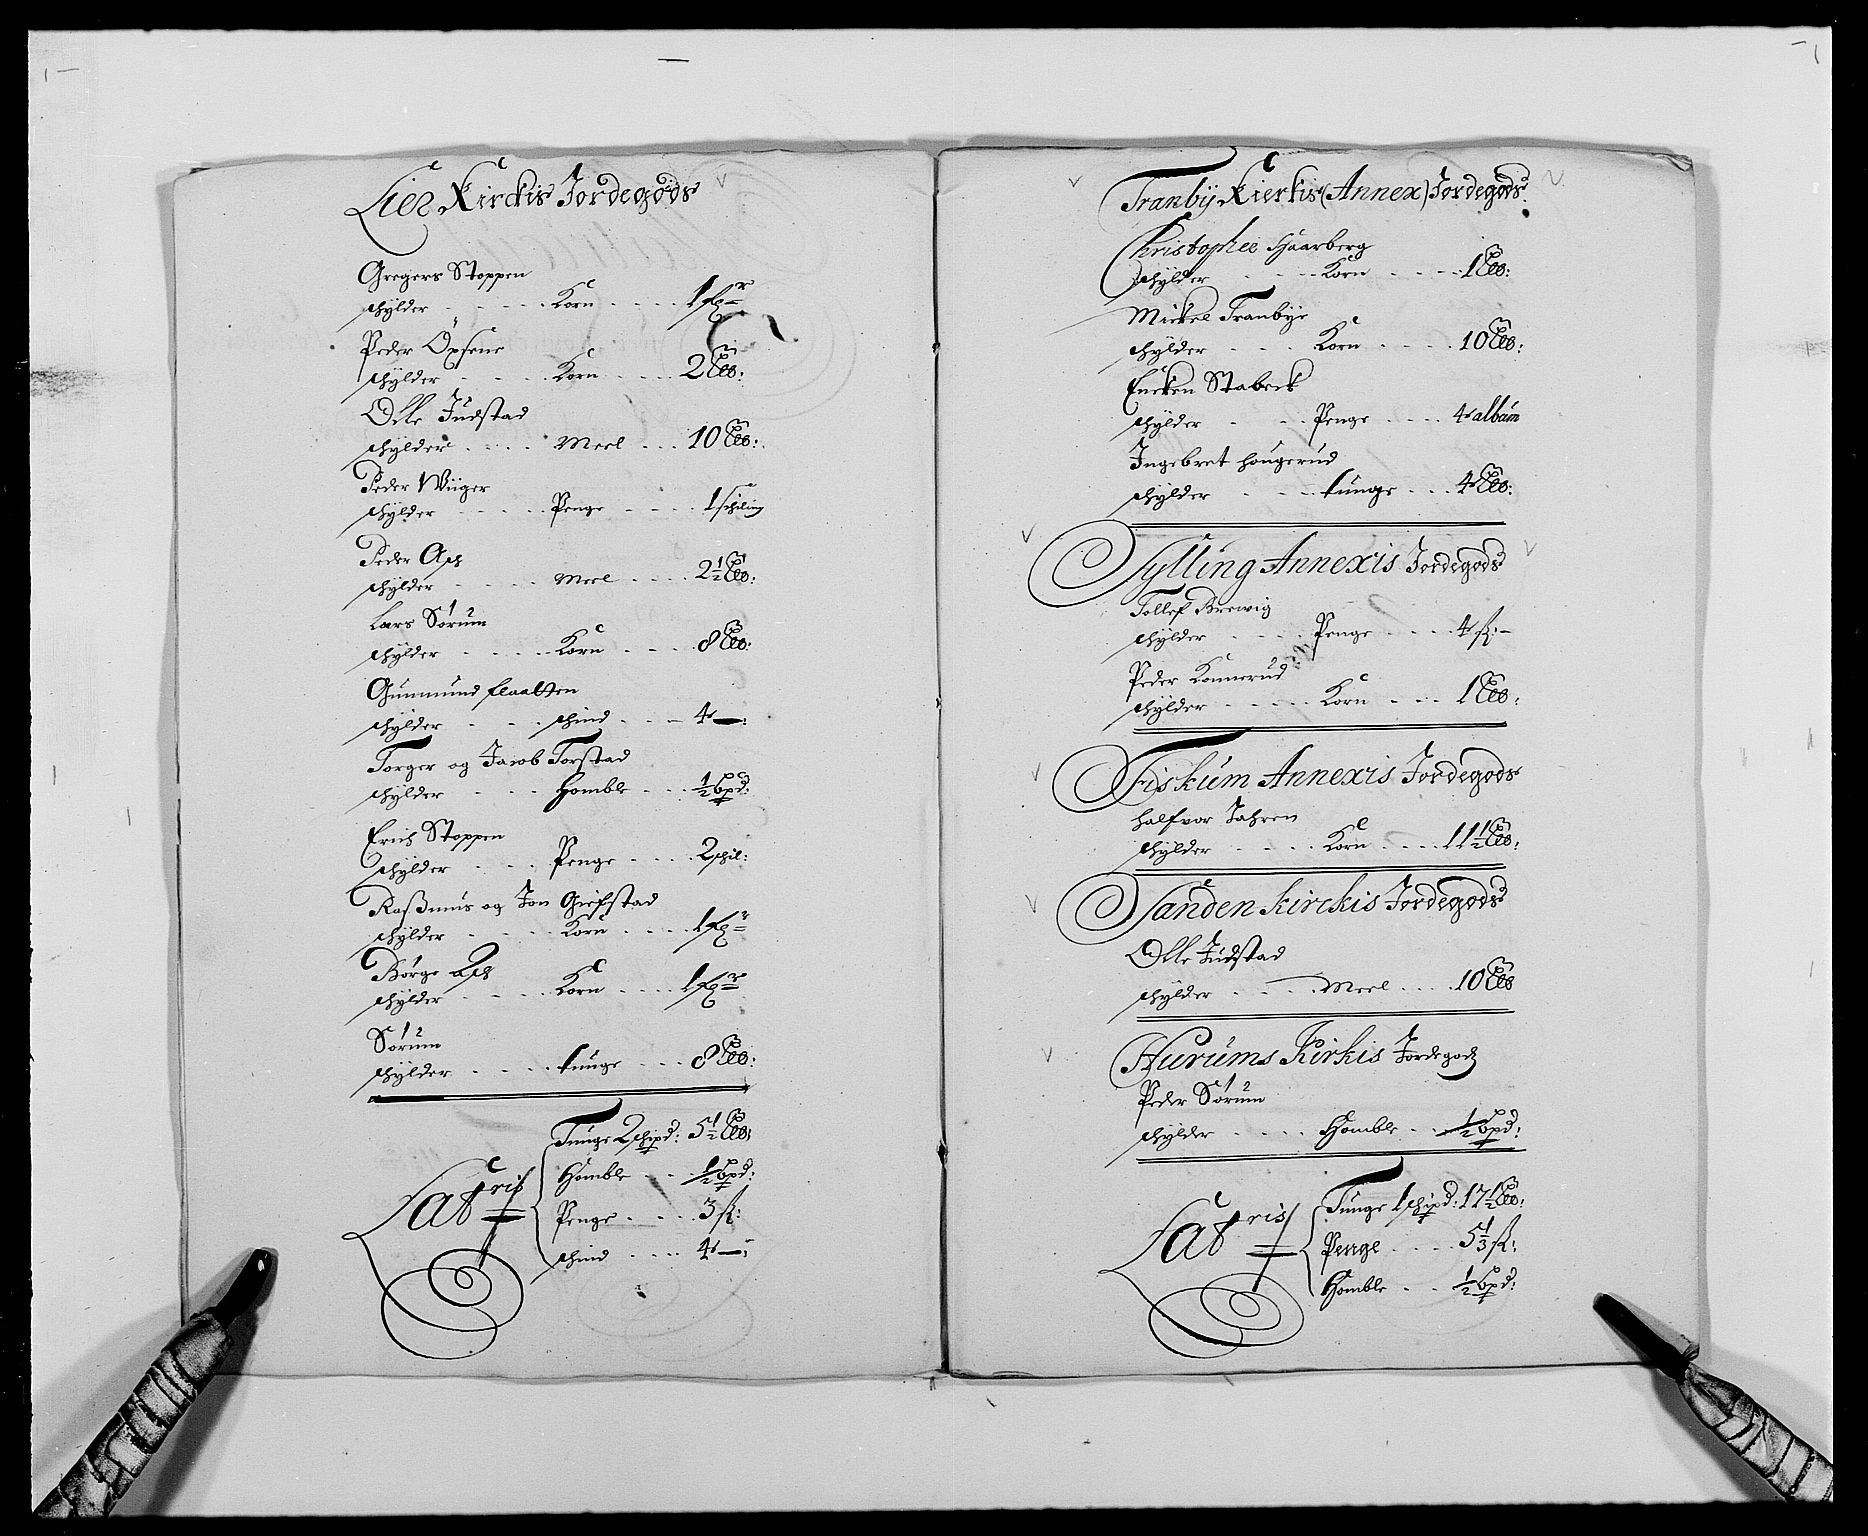 Lier Kirckis Jordegods
Gregers Stoppen
schylder Korn 1 fz
Peder Opsene
schylder Korn 2 lb:
Olle Judstad
schylder Meel 10 lb:
Peder Wiiger
schylder Penge 1 schiling
Peder Ask
schylder Meel 2½ lb:
Lars Sørum
schylder Korn 8 lb:
Gunmund flaatten
schylder schind 4 —:
Torger og Jacob Torstad
schylder Homble ½ bpd:
Erich Stoppen
schylder Penge 2 schil:
Raßmus og Jon Giefstad
schylder Korn 1 fz
Børge Ask
schylder Korn 1 fz
Sørum
schylder tunge 8 lb:
Latris
Tunge 2 schpd: 5½ lb:
Homble ½ bpd:
Penge 3 ß:
schind 4 —:
Tranbÿ Kierkis (Annex) Jordegods
Christopher Haarberg
schylder Korn 1 lb:
Mickel Tranbye
schylder Korn 10 lb:
Encken Stabeck
schylder Penge 4 album
Ingebret Hougerud
schylder tunge 4 lb:
Sylling Annexis Jordegods
Tollef Brewig
schylder Penge 4 ß:
Peder Konnerud
schylder Korn 1 lb:
Fiskum Annexis Jordegods
Halfvor Jahren
schylder Korn 11½ lb:
Sanden Kirckis Jordegods
Olle Judstad
schylder Meel 10 lb
Hurums Kirkis Jordegods
Peder Sørum
schylder Homble ½ bpd:
Latris
Tunge 1 schpd: 17½ lb:
Penge 5⅓ ß:
Homble ½ bpd: